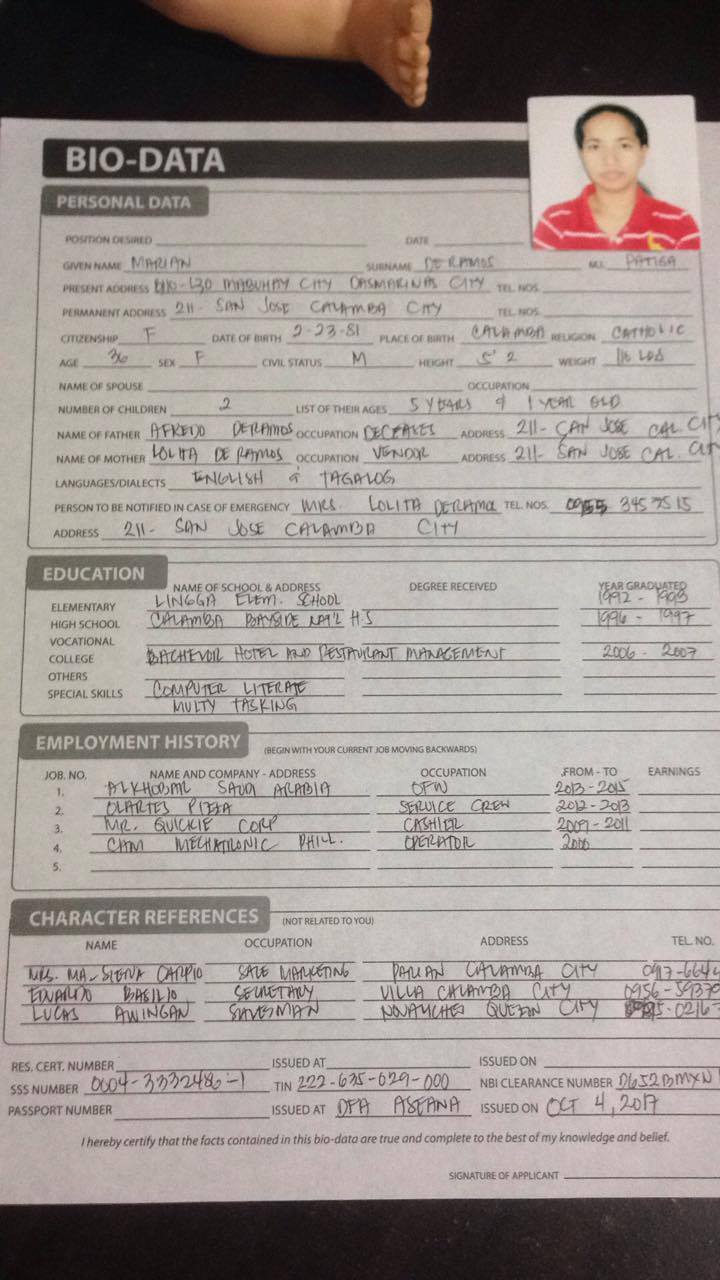 BIO-DATA
PERSONAL DATA
POSITION DESIRED DATE
GIVEN NAME MARIAN SURNAME DE RAMOS M.I. PATIGA
PRESENT ADDRESS L30 MABUHAY CITY DASMARINAS CITY TEL. NOS.
PERMANENT ADDRESS 211- SAN JOSE CALAMBA CITY TEL. NOS.
CITIZENSHIP F DATE OF BIRTH 2-23-81 PLACE OF BIRTH CALAMBA RELIGION CATHOLIC
AGE 36 SEX F CIVIL STATUS M HEIGHT 5'2 WEIGHT LBS
NAME OF SPOUSE OCCUPATION
NUMBER OF CHILDREN 2 LIST OF THEIR AGES 5 YEARS & 1 YEAR OLD
NAME OF FATHER AFREDO DERAMOS OCCUPATION ADDRESS 211- SAN JOSE CAL. CITY
NAME OF MOTHER LOLITA DE RAMOS OCCUPATION VENDOR ADDRESS 211- SAN JOSE CAL. CITY
LANGUAGES/DIALECTS ENGLISH & TAGALOG
PERSON TO BE NOTIFIED IN CASE OF EMERGENCY MRS. LOLITA DERAMOS TEL. NOS. 345 7515
ADDRESS 211- SAN JOSE CALAMBA CITY
EDUCATION
NAME OF SCHOOL & ADDRESS DEGREE RECEIVED YEAR GRADUATED
ELEMENTARY LINGGA ELEM. SCHOOL 1992 - 1993
HIGH SCHOOL CALAMBA BAYSIDE NAT'L H.S 1996 - 1997
VOCATIONAL
COLLEGE BACHEVOR HOTEL AND RESTAURANT MANAGEMENT 2006 - 2007
OTHERS
SPECIAL SKILLS COMPUTER LITERATE
MULTY TASKING
EMPLOYMENT HISTORY (BEGIN WITH YOUR CURRENT JOB MOVING BACKWARDS)
JOB. NO. NAME AND COMPANY - ADDRESS OCCUPATION FROM - TO EARNINGS
1. ALKHOBAR SAUDI ARABIA OFW 2013-2015
2. OLARTES PIZZA SERVICE CREW 2012-2013
3. MR. QUICKIE CORP CASHIER 2009-2011
4. CAM MECHATRONIC PHILL. OPERATOR 2006
5.
CHARACTER REFERENCES (NOT RELATED TO YOU)
NAME OCCUPATION ADDRESS TEL. NO.
MRS. MA- CARPIO SALE MARKETING PARIAN CALAMBA CITY 0917-6644
BASILIO SECRETARY VILLA CALAMBA CITY 0956-
LUCAS AWINGAN SALESMAN QUEZON CITY
RES. CERT. NUMBER ISSUED AT ISSUED ON
SSS NUMBER 0004-3332486-1 TIN 222-635-629-000 NBI CLEARANCE NUMBER D652BMXN
PASSPORT NUMBER ISSUED AT DFA ASEANA ISSUED ON OCT 4, 2017
I hereby certify that the facts contained in this bio-data are true and complete to the best of my knowledge and belief.
SIGNATURE OF APPLICANT